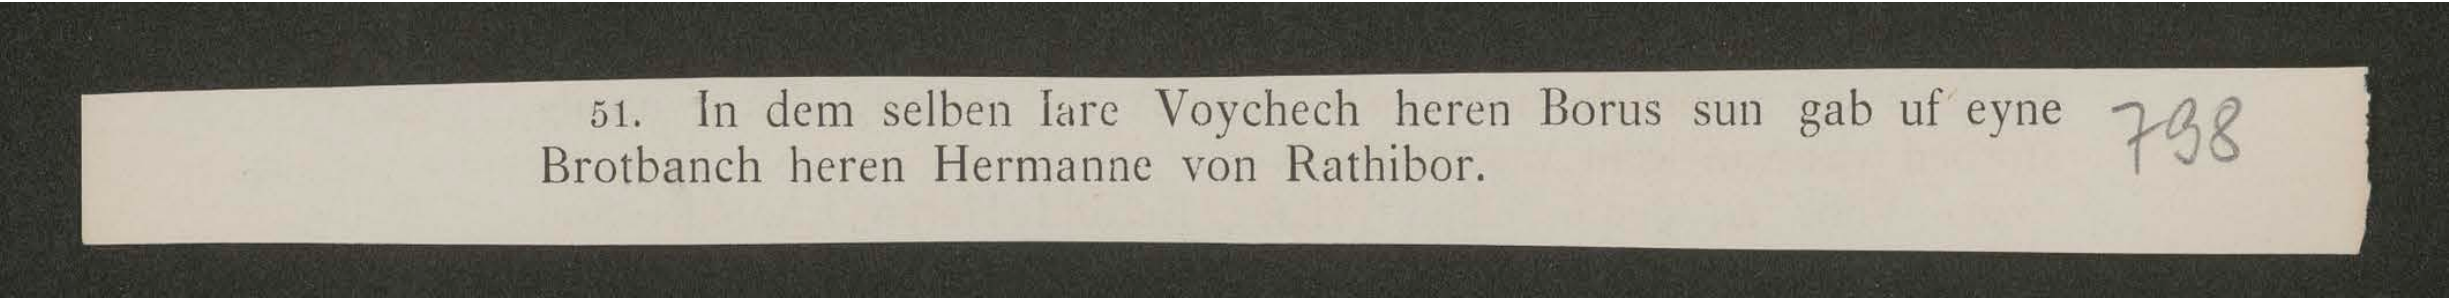 51. In dem selben Iare Voychech heren Borus sun gab uf eyne 798
Brotbanch heren Hermanne von Rathibor.